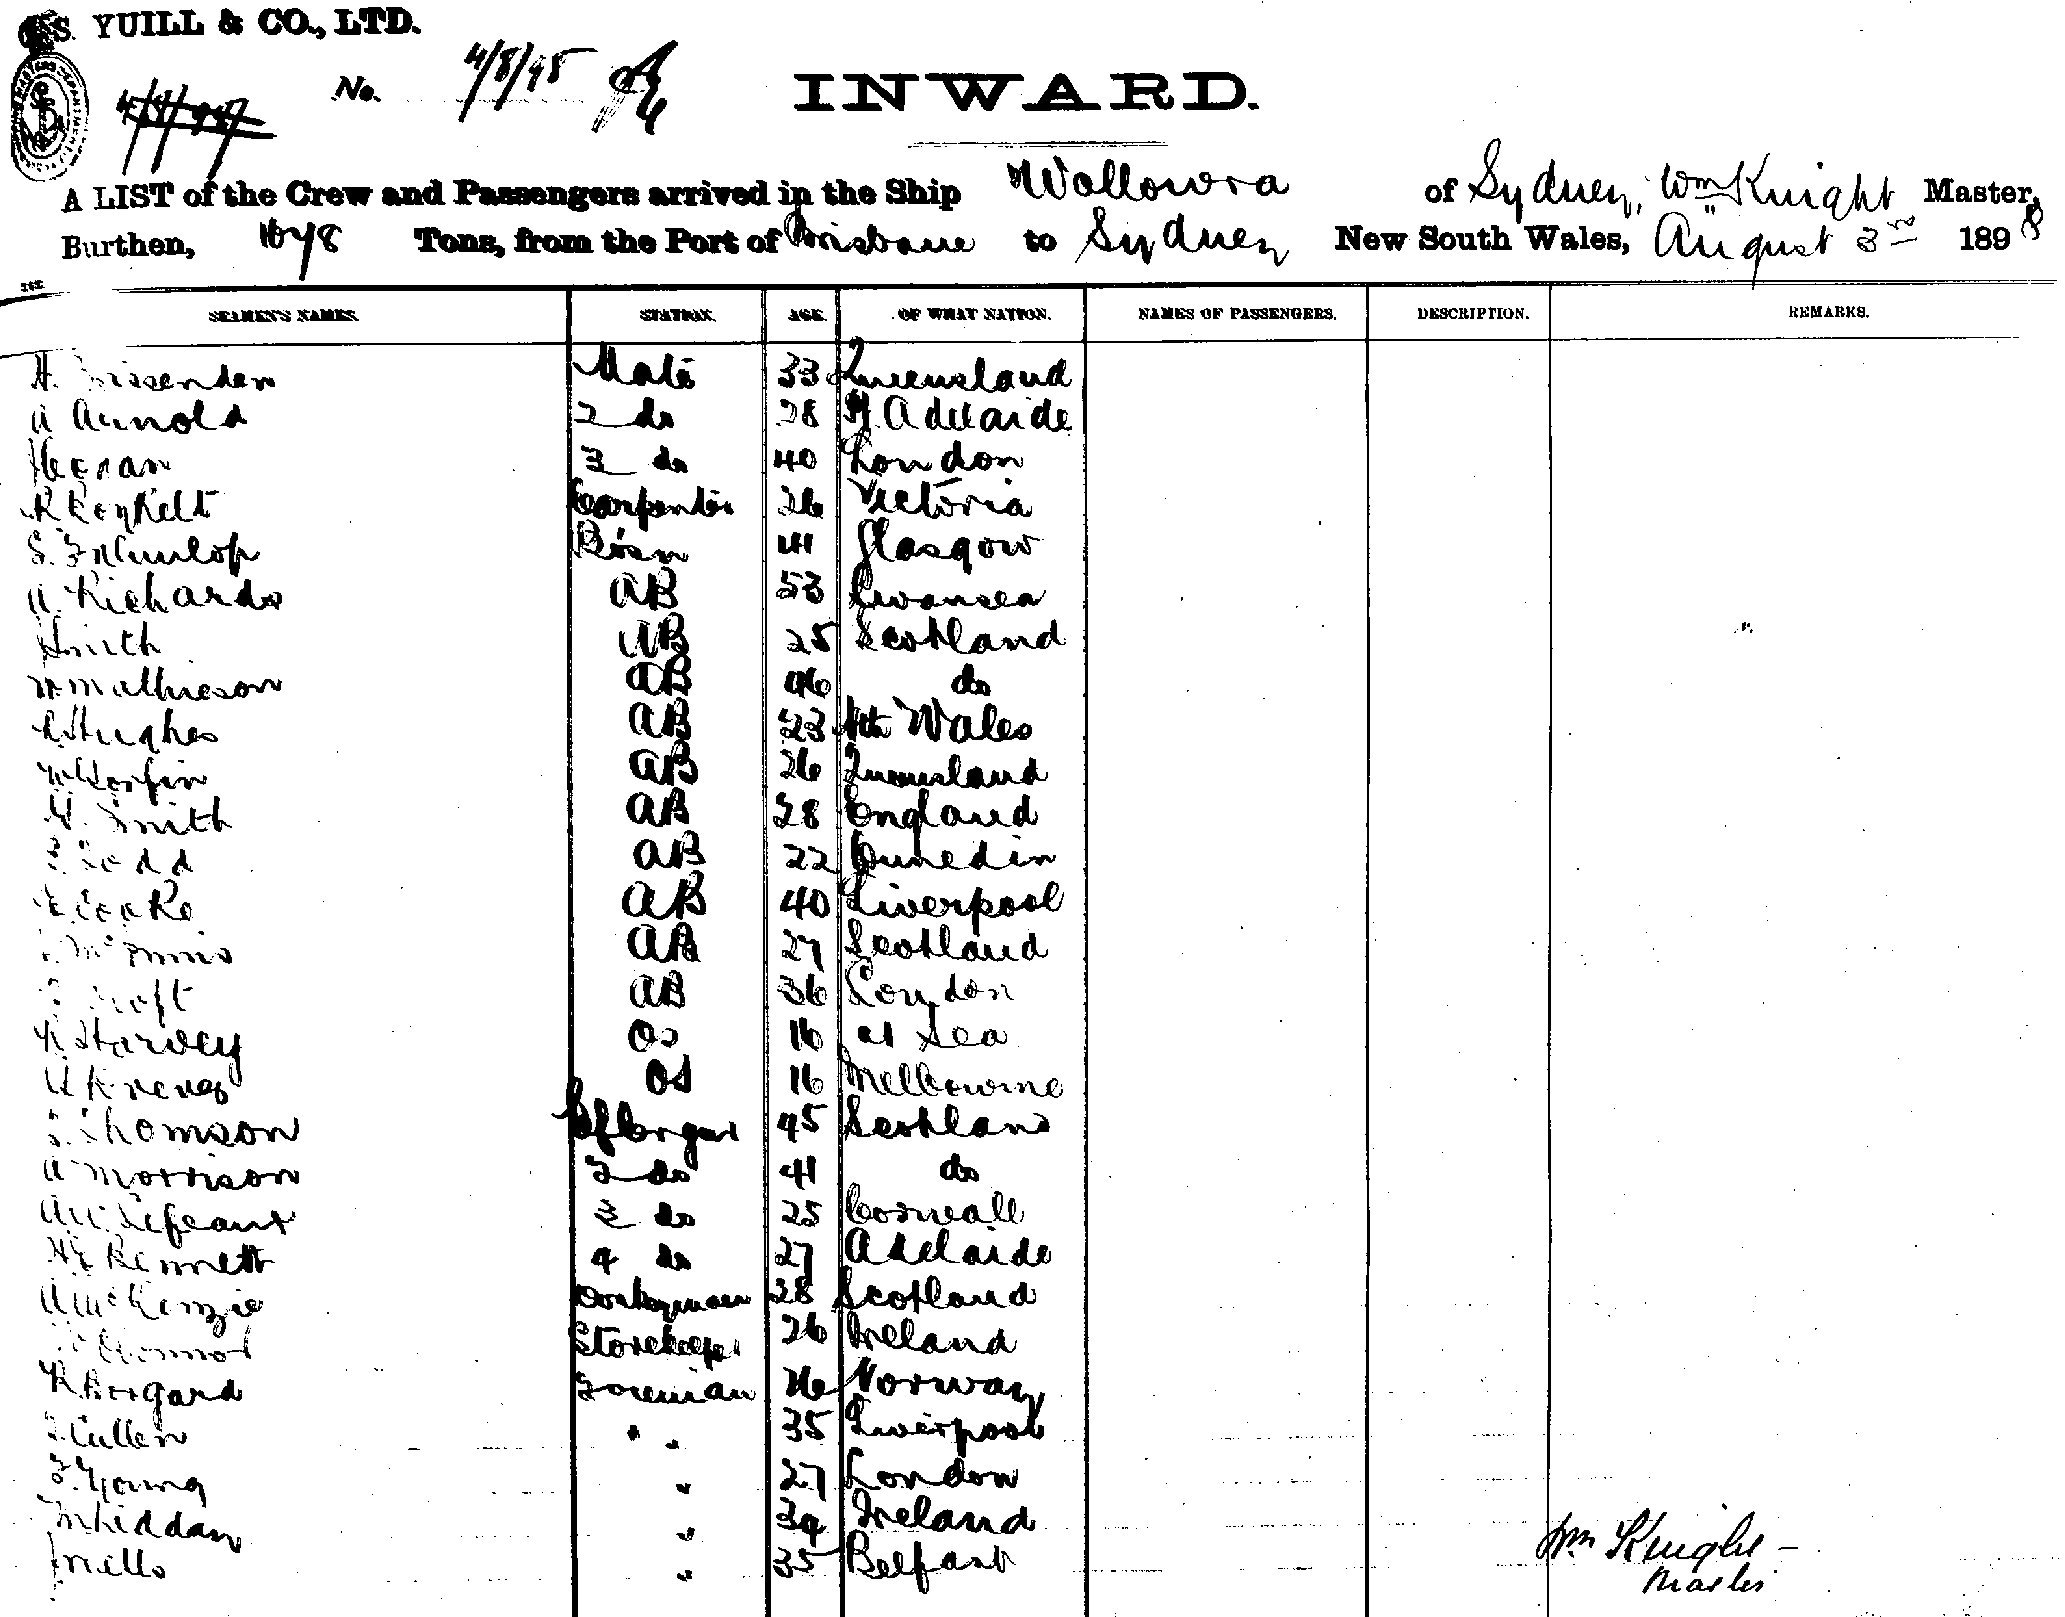 S. YUILL & CO., LTD.
No. 4/8/98
INWARD.
A LIST of the Crew and Passengers arrived in the Ship Wollowra of Sydney, Wm Knight Master,
Burthen, Tons, from the Port of Brisbane to Sydney New South Wales, August 3rd 1898
SEAMEN'S NAMES. STATION. AGE. OF WHAT NATION. NAMES OF PASSENGERS. DESCRIPTION. REMARKS.
H. Mate 33 Queensland
A Arnold 2 do 28 Adelaide
3 do 40 London
Carpenter 26 Victoria
Dunlop Bosn 41 Glasgow
A. Richards AB 53 Swansea
Smith AB 25 Scotland
Mathieson AB 46 do
Hughes AB 23 Nth Wales
AB 26 Queensland
Smith AB 28 England
AB 22 Dunedin
Cooke AB 40 Liverpool
AB 27 Scotland
AB 36 London
Harvey OS 16 at Sea
OS 16 Melbourne
Thomson 45 Scotland
A Morrison 2 do 41 do
3 do 25 Cornwall
Bennett 4 do 27 Adelaide
A McKenzie Donkeyman 28 Scotland
Storekeeper 26 Ireland
Foreman Norway
Cullen " " 35 Liverpool
Young " 27 London
" Ireland
" 35 Belfast
Wm Knight
Master